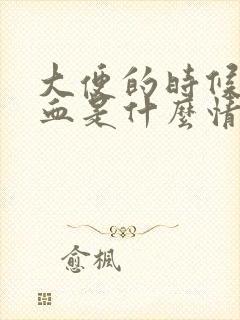 大便的時候
血是什麼情
愈楓